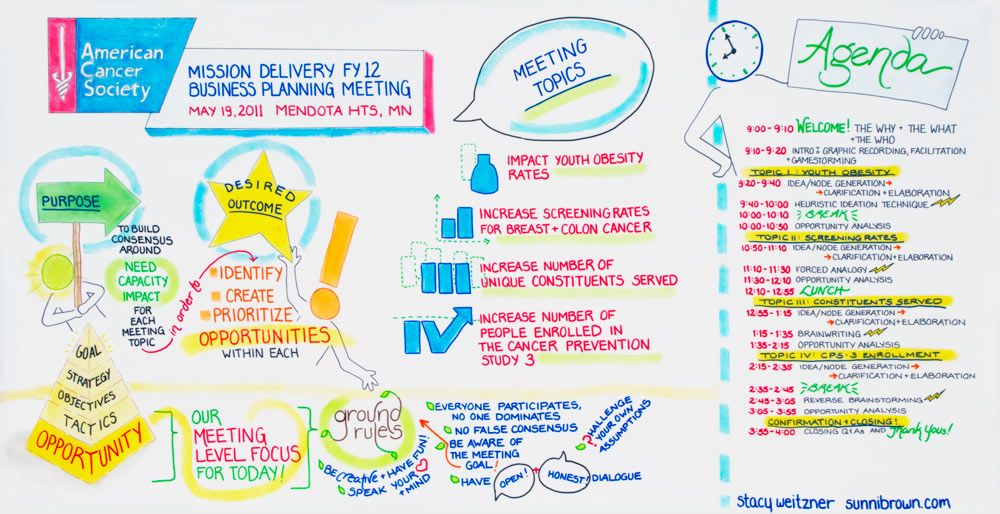 American
Cancer
Society
MISSION DELIVERY FY12
BUSINESS PLANNING MEETING
MAY 19, 2011 MENDOTA HTS, MN
PURPOSE
TO BUILD
CONSENSUS
AROUND
NEED
CAPACITY
IMPACT
FOR
EACH
MEETING
TOPIC
in order to
DESIRED
OUTCOME
IDENTIFY
CREATE
PRIORITIZE
OPPORTUNITIES
WITHIN EACH
GOAL
STRATEGY
OBJECTIVES
TACTICS
OPPORTUNITY
OUR
MEETING
LEVEL FOCUS
FOR TODAY!
ground
rules
BE CREATIVE + HAVE FUN!
SPEAK YOUR
+ MIND
EVERYONE PARTICIPATES,
NO ONE DOMINATES
NO FALSE CONSENSUS
BE AWARE OF
THE MEETING
GOAL!
HAVE OPEN! + HONEST! DIALOGUE
CHALLENGE
YOUR OWN
ASSUMPTIONS
MEETING
TOPICS
IMPACT YOUTH OBESITY
RATES
INCREASE SCREENING RATES
FOR BREAST + COLON CANCER
INCREASE NUMBER OF
UNIQUE CONSTITUENTS SERVED
IV
INCREASE NUMBER OF
PEOPLE ENROLLED IN
THE CANCER PREVENTION
STUDY 3
Agenda
9:00-9:10 WELCOME! THE WHY + THE WHAT
+ THE WHO
9:10-9:20 INTRO: GRAPHIC RECORDING, FACILITATION
+ GAMESTORMING
TOPIC I: YOUTH OBESITY
9:20-9:40 IDEA/NODE GENERATION →
→ CLARIFICATION + ELABORATION
9:40-10:00 HEURISTIC IDEATION TECHNIQUE
10:00-10:10 BREAK
10:00-10:50 OPPORTUNITY ANALYSIS
TOPIC II: SCREENING RATES
10:50-11:10 IDEA/NODE GENERATION →
→ CLARIFICATION + ELABORATION
11:10-11:30 FORCED ANALOGY
11:30-12:10 OPPORTUNITY ANALYSIS
12:10-12:55 LUNCH
TOPIC III: CONSTITUENTS SERVED
12:55-1:15 IDEA/NODE GENERATION →
→ CLARIFICATION + ELABORATION
1:15-1:35 BRAINWRITING
1:35-2:15 OPPORTUNITY ANALYSIS
TOPIC IV: CPS-3 ENROLLMENT
2:15-2:35 IDEA/NODE GENERATION →
→ CLARIFICATION + ELABORATION
2:35-2:45 BREAK
2:45-3:05 REVERSE BRAINSTORMING
3:05-3:55 OPPORTUNITY ANALYSIS
CONFIRMATION + CLOSING!
3:55-4:00 CLOSING Q+AS AND Thank Yous!
stacy weitzner sunnibrown.com